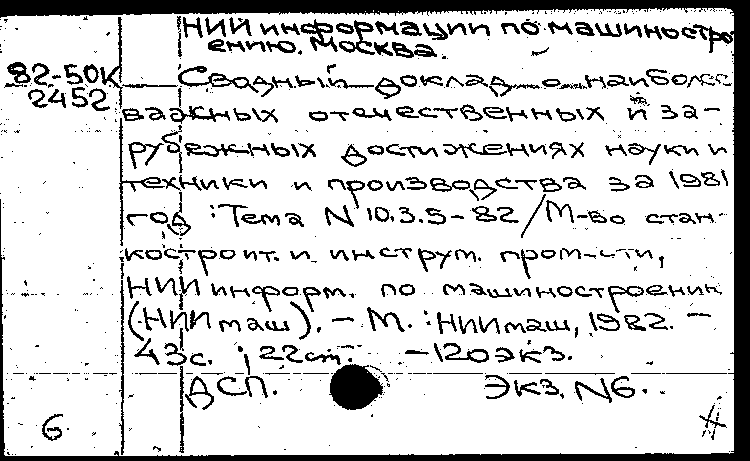 НИИ информации по машиностро
ению. Москва.
82-50К
2452
Сводный доклад о наиболее
важных отечественных и за-
рубежных достижениях науки и
техники и производства за 1981
год : Тема N 10.3.5-82 / М-во стан-
костроит. и инструм. пром-сти,
НИИ информ. по машиностроении
(НИИмаш). - М. : НИИмаш, 1982. -
43с. ; 22см. - 120экз.
ДСП. Экз. N6.
6